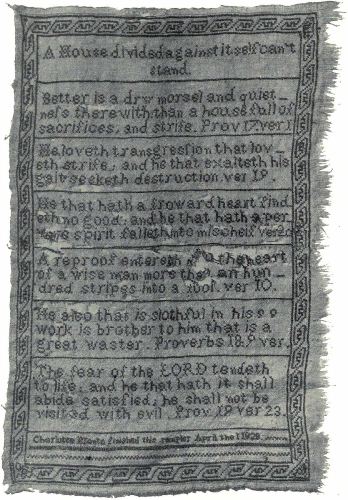 A House divided against itself can't
stand.
Better is a dry morsel and quiet
ness therewith, than a house full of
sacrifices, and strife. Prov 17. ver 1
He loveth transgression that lov
eth strife, and he that exalteth his
gate seeketh destruction ver 19.
He that hath a froward heart find
eth no good, and he that hath a per
verse spirit falleth into mischeif ver 20
A reproof entereth the heart
of a wise man more than an hun
dred stripes into a fool. ver 10.
He also that is slothful in his
work is brother to him that is a
great waster. Proverbs 18.9 ver.
The fear of the LORD tendeth
to life; and he that hath it shall
abide satisfied; he shall not be
visited with evil. Prov 19 ver 23.
Charlotte Bronte finished this sampler April the 1 1829.